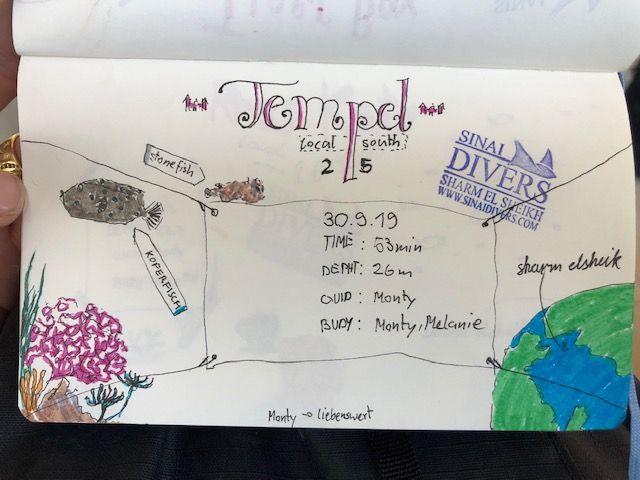 Tempel
local south
25
stonefish
SINAI
DIVERS
SHARM EL SHEIKH
WWW.SINAIDIVERS.COM
KOFERFISCH
30.9.19
TIME : 53min
DEPHT : 26m
GUID : Monty
BUDY : Monty, Melanie
sharm elsheik
Monty → liebenswert